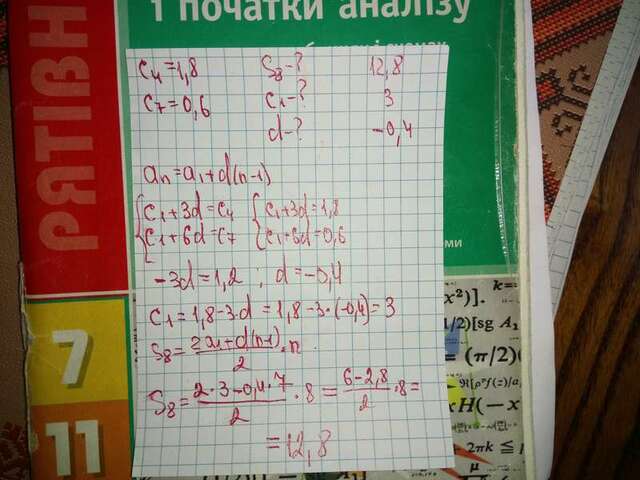 І початки аналізу
РЯТІВН
c₄=1,8 S₈-? 12,8
c₇=0,6 c₁-? 3
d-? -0,4
aₙ=a₁+d(n-1)
{c₁+3d=c₄ {c₁+3d=1,8
{c₁+6d=c₇ {c₁+6d=0,6
ми
-3d=1,2 ; d=-0,4
c₁=1,8-3·d=1,8-3·(-0,4)=3
S₈=2a₁+d(n-1)/2·n
7
S₈=2·3-0,4·7/2·8=6-2,8/2·8=
11
=12,8
k=
x²)].
1/2)[sg A₁
(π/2)
xH(-x
2πk ≤